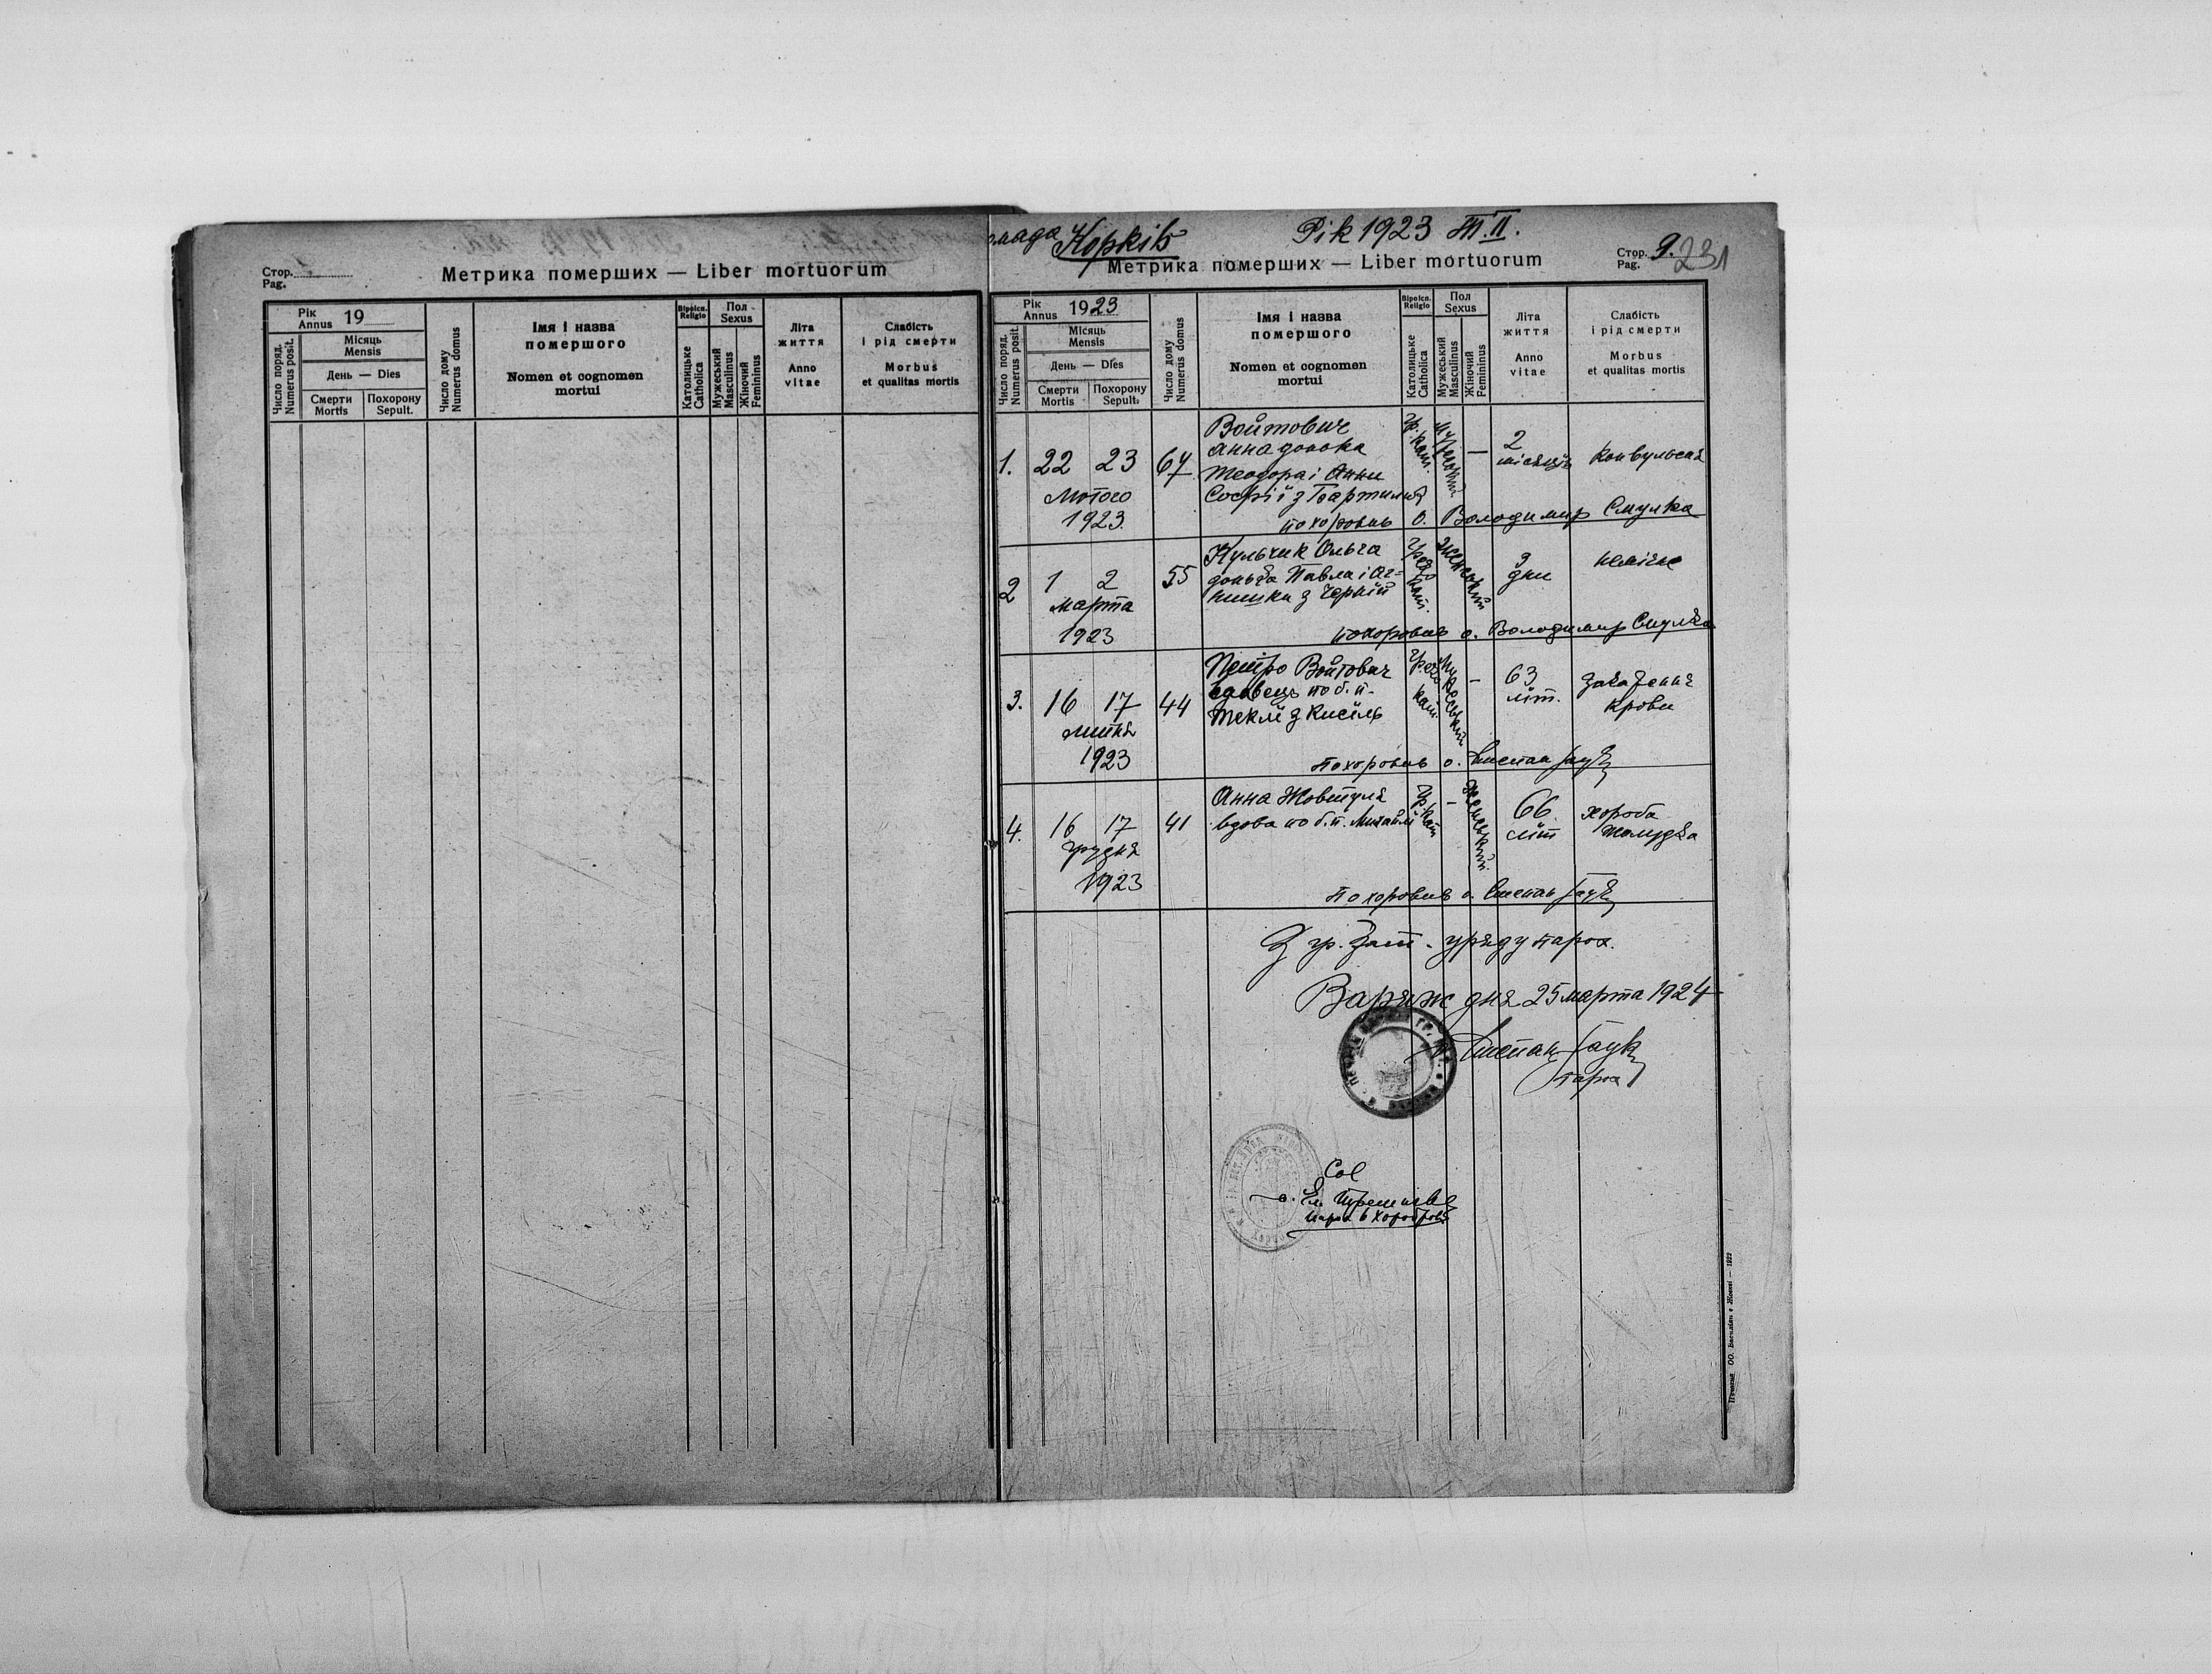 Стор.
Pag.
Метрика померших — Liber mortuorum
Рік
Annus 19
Число поряд.
Numerus posit.
Місяць
Mensis
День — Dies
Смерти
Mortis
Похорону
Sepult.
Число дому
Numerus domus
Імя і назва
помершого
Nomen et cognomen
mortui
Віроісп.
Religio
Католицьке
Catholica
Пол
Sexus
Мужеський
Masculinus
Жіночий
Femininus
Літа
життя
Anno
vitae
Слабість
і рід смерти
Morbus
et qualitas mortis
омада Корків Рік 1923 Т.ІІ.
Метрика померших — Liber mortuorum
Стор.
Pag. 9. 231
Рік
Annus 1923
Число поряд.
Numerus posit.
Місяць
Mensis
День — Dies
Смерти
Mortis
Похорону
Sepult.
Число дому
Numerus domus
Імя і назва
помершого
Nomen et cognomen
mortui
Віроісп.
Religio
Католицьке
Catholica
Пол
Sexus
Мужеський
Masculinus
Жіночий
Femininus
Літа
життя
Anno
vitae
Слабість
і рід смерти
Morbus
et qualitas mortis
1. 22 23 лютого 1923. 67
Войтович
Анна донька
Теодора і Анни
Софії з
гр. кат. — 2 місяці
похоронив о. Володимир Смулка
2 1 2 марта 1923 55
Кульчик Ольга
донька Павла і Аг-
нишки з
греко кат. женський 3 дни неміч
похоронив о. Володимир Смулка
3. 16 17 липня 1923 44
Петро Войтович
вдовець по б. п.
Теклі з Кисіль
греко кат. мужеський — 63 літ. закаженнє крови
похоронив о. Степан
4. 16 17 грудня 1923 41
Анна Жовтуля
вдова по б. п. Михайлі
гр. кат — женський. 66 літ хороба жолудка
похоронив о. Степан
З гр. кат. уряду парох.
Варяж дня 25 марта 1924
Степан
парох
о.
парох в Хороброві
Печатня ОО. Василіян в Жовкві — 1922